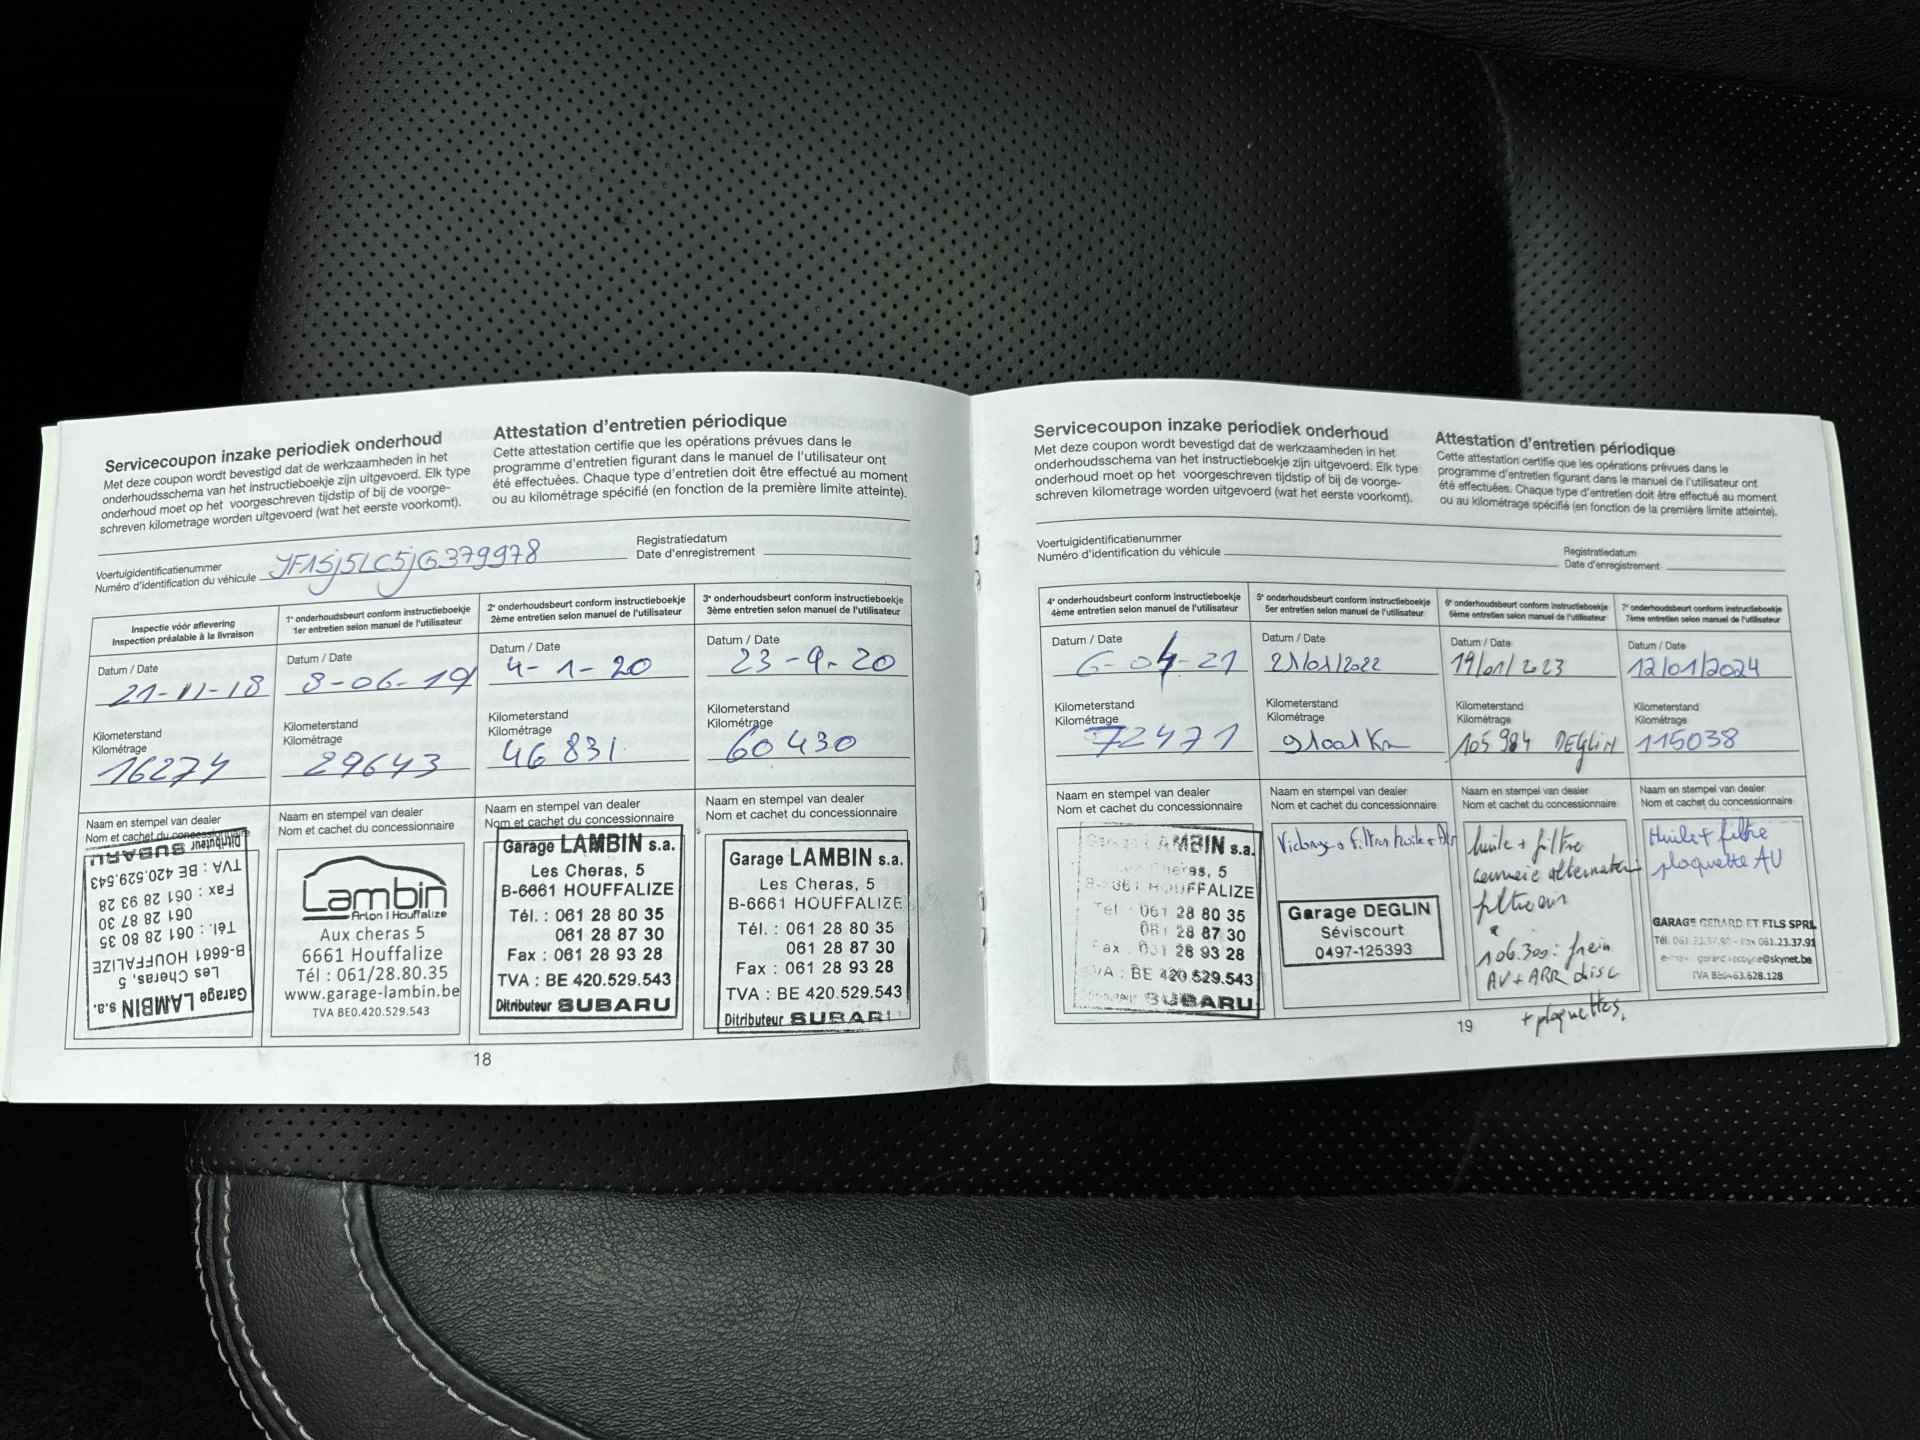 Servicecoupon inzake periodiek onderhoud
Met deze coupon wordt bevestigd dat de werkzaamheden in het
onderhoudsschema van het instructieboekje zijn uitgevoerd. Elk type
onderhoud moet op het voorgeschreven tijdstip of bij de voorge-
schreven kilometrage worden uitgevoerd (wat het eerste voorkomt).
Attestation d'entretien périodique
Cette attestation certifie que les opérations prévues dans le
programme d'entretien figurant dans le manuel de l'utilisateur ont
été effectuées. Chaque type d'entretien doit être effectué au moment
ou au kilométrage spécifié (en fonction de la première limite atteinte).
Voertuigidentificatienummer
Numéro d'identification du véhicule JF1SJ5LC5JG379978
Registratiedatum
Date d'enregistrement
Inspectie vóór aflevering
Inspection préalable à la livraison
Datum / Date
21-11-18
Kilometerstand
Kilométrage
16274
Naam en stempel van dealer
Nom et cachet du concessionnaire
Garage LAMBIN s.a.
Les Cheras, 5
B-6661 HOUFFALIZE
Tél. : 061 28 80 35
061 28 87 30
Fax : 061 28 93 28
TVA : BE 420.529.543
Ditributeur SUBARU
1e onderhoudsbeurt conform instructieboekje
1er entretien selon manuel de l'utilisateur
Datum / Date
8-06-19
Kilometerstand
Kilométrage
29643
Naam en stempel van dealer
Nom et cachet du concessionnaire
Lambin
Arlon | Houffalize
Aux cheras 5
6661 Houffalize
Tél : 061/28.80.35
www.garage-lambin.be
TVA BE0.420.529.543
2e onderhoudsbeurt conform instructieboekje
2ème entretien selon manuel de l'utilisateur
Datum / Date
4-1-20
Kilometerstand
Kilométrage
46 831
Naam en stempel van dealer
Nom et cachet du concessionnaire
Garage LAMBIN s.a.
Les Cheras, 5
B-6661 HOUFFALIZE
Tél. : 061 28 80 35
061 28 87 30
Fax : 061 28 93 28
TVA : BE 420.529.543
Ditributeur SUBARU
3e onderhoudsbeurt conform instructieboekje
3ème entretien selon manuel de l'utilisateur
Datum / Date
23-9-20
Kilometerstand
Kilométrage
60 430
Naam en stempel van dealer
Nom et cachet du concessionnaire
Garage LAMBIN s.a.
Les Cheras, 5
B-6661 HOUFFALIZE
Tél. : 061 28 80 35
061 28 87 30
Fax : 061 28 93 28
TVA : BE 420.529.543
Ditributeur SUBARU
18
Servicecoupon inzake periodiek onderhoud
Met deze coupon wordt bevestigd dat de werkzaamheden in het
onderhoudsschema van het instructieboekje zijn uitgevoerd. Elk type
onderhoud moet op het voorgeschreven tijdstip of bij de voorge-
schreven kilometrage worden uitgevoerd (wat het eerste voorkomt).
Attestation d'entretien périodique
Cette attestation certifie que les opérations prévues dans le
programme d'entretien figurant dans le manuel de l'utilisateur ont
été effectuées. Chaque type d'entretien doit être effectué au moment
ou au kilométrage spécifié (en fonction de la première limite atteinte).
Voertuigidentificatienummer
Numéro d'identification du véhicule
Registratiedatum
Date d'enregistrement
4e onderhoudsbeurt conform instructieboekje
4ème entretien selon manuel de l'utilisateur
Datum / Date
6-04-21
Kilometerstand
Kilométrage
72471
Naam en stempel van dealer
Nom et cachet du concessionnaire
Garage LAMBIN s.a.
Les Cheras, 5
B-6661 HOUFFALIZE
Tél : 061 28 80 35
061 28 87 30
Fax : 061 28 93 28
TVA : BE 420.529.543
Ditributeur SUBARU
5e onderhoudsbeurt conform instructieboekje
5er entretien selon manuel de l'utilisateur
Datum / Date
21/01/2022
Kilometerstand
Kilométrage
91001 Km
Naam en stempel van dealer
Nom et cachet du concessionnaire
Vidange + Filtres huile + Air
Garage DEGLIN
Séviscourt
0497-125393
6e onderhoudsbeurt conform instructieboekje
6ème entretien selon manuel de l'utilisateur
Datum / Date
19/01/2023
Kilometerstand
Kilométrage
105 984 DEGLIN
Naam en stempel van dealer
Nom et cachet du concessionnaire
huile + filtre
courroie alternateur
filtre air
106.300: frein
AV + ARR disc
+ plaquettes.
7e onderhoudsbeurt conform instructieboekje
7ème entretien selon manuel de l'utilisateur
Datum / Date
12/01/2024
Kilometerstand
Kilométrage
115038
Naam en stempel van dealer
Nom et cachet du concessionnaire
Huile + filtre
plaquette AV
GARAGE GERARD ET FILS SPRL
Fax 061.23.37.91
@skynet.be
19